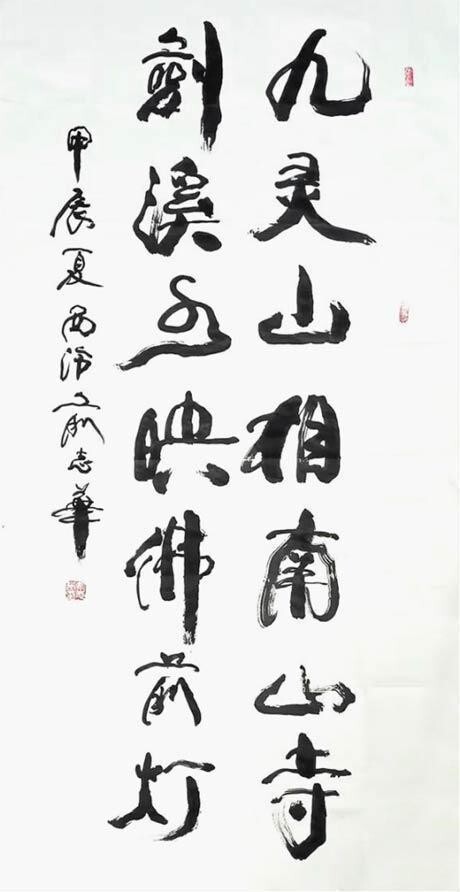 九灵山相南山寺
剑溪水映佛前灯
甲辰夏西泠俞志华